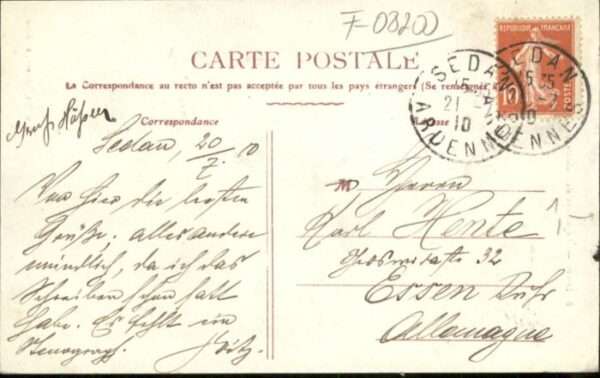 F-03200
CARTE POSTALE
La Correspondance au recto n'est pas acceptée par tous les pays étrangers (Se renseigner
Correspondance
Sedan, 20/7. 10
Von hier die besten
Grüße, alles andere
mündlich, da ich das
Schreiben schon satt
habe. Es fehlt ein
Stenograph. Fritz.
Herrn
Karl Hente
32
Essen Ruhr
Allemagne
REPUBLIQUE FRANÇAISE
10
POSTES
SEDAN
21
10
ARDENNES
SEDAN
10
ARDENNES